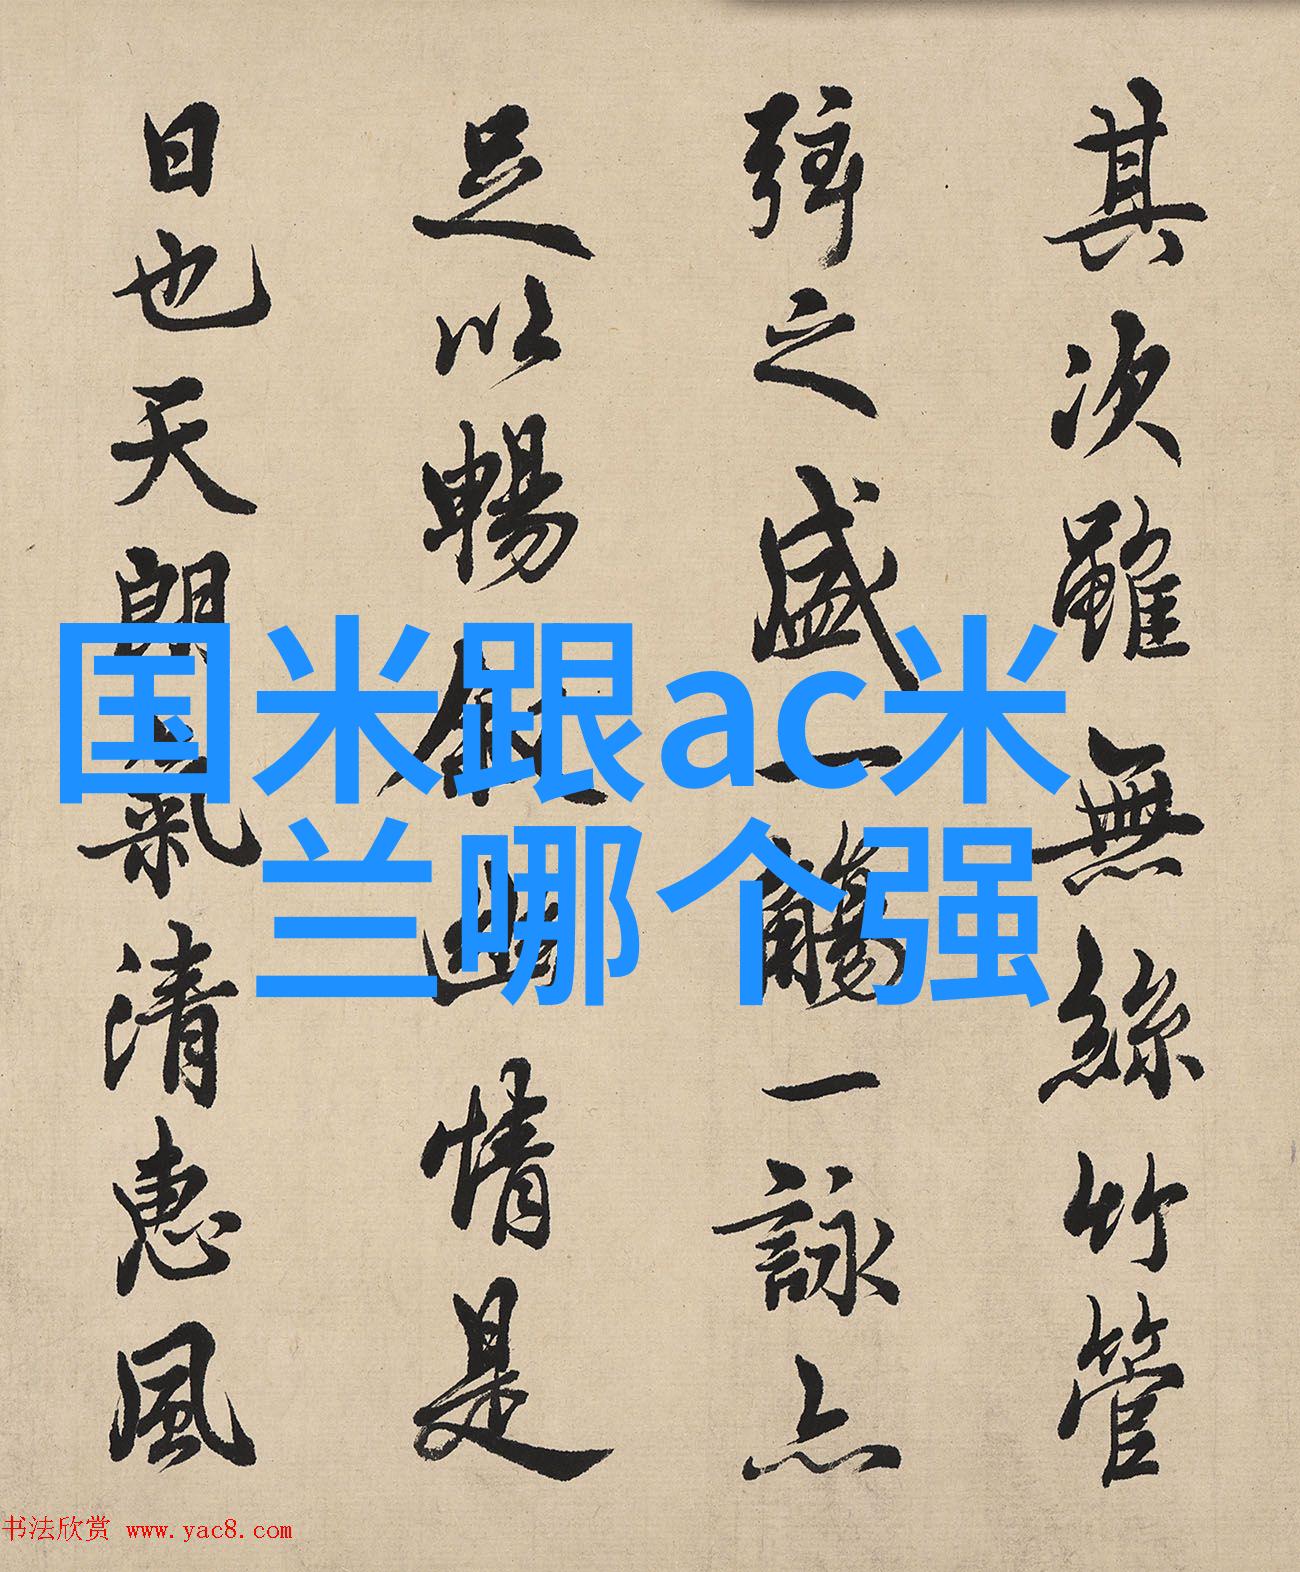 其次雖無絲竹管
弦之盛一觴一詠亦
足以暢敘幽情是
日也天朗氣清惠風
国米跟ac米
兰哪个强
书法欣赏 www.yac8.com